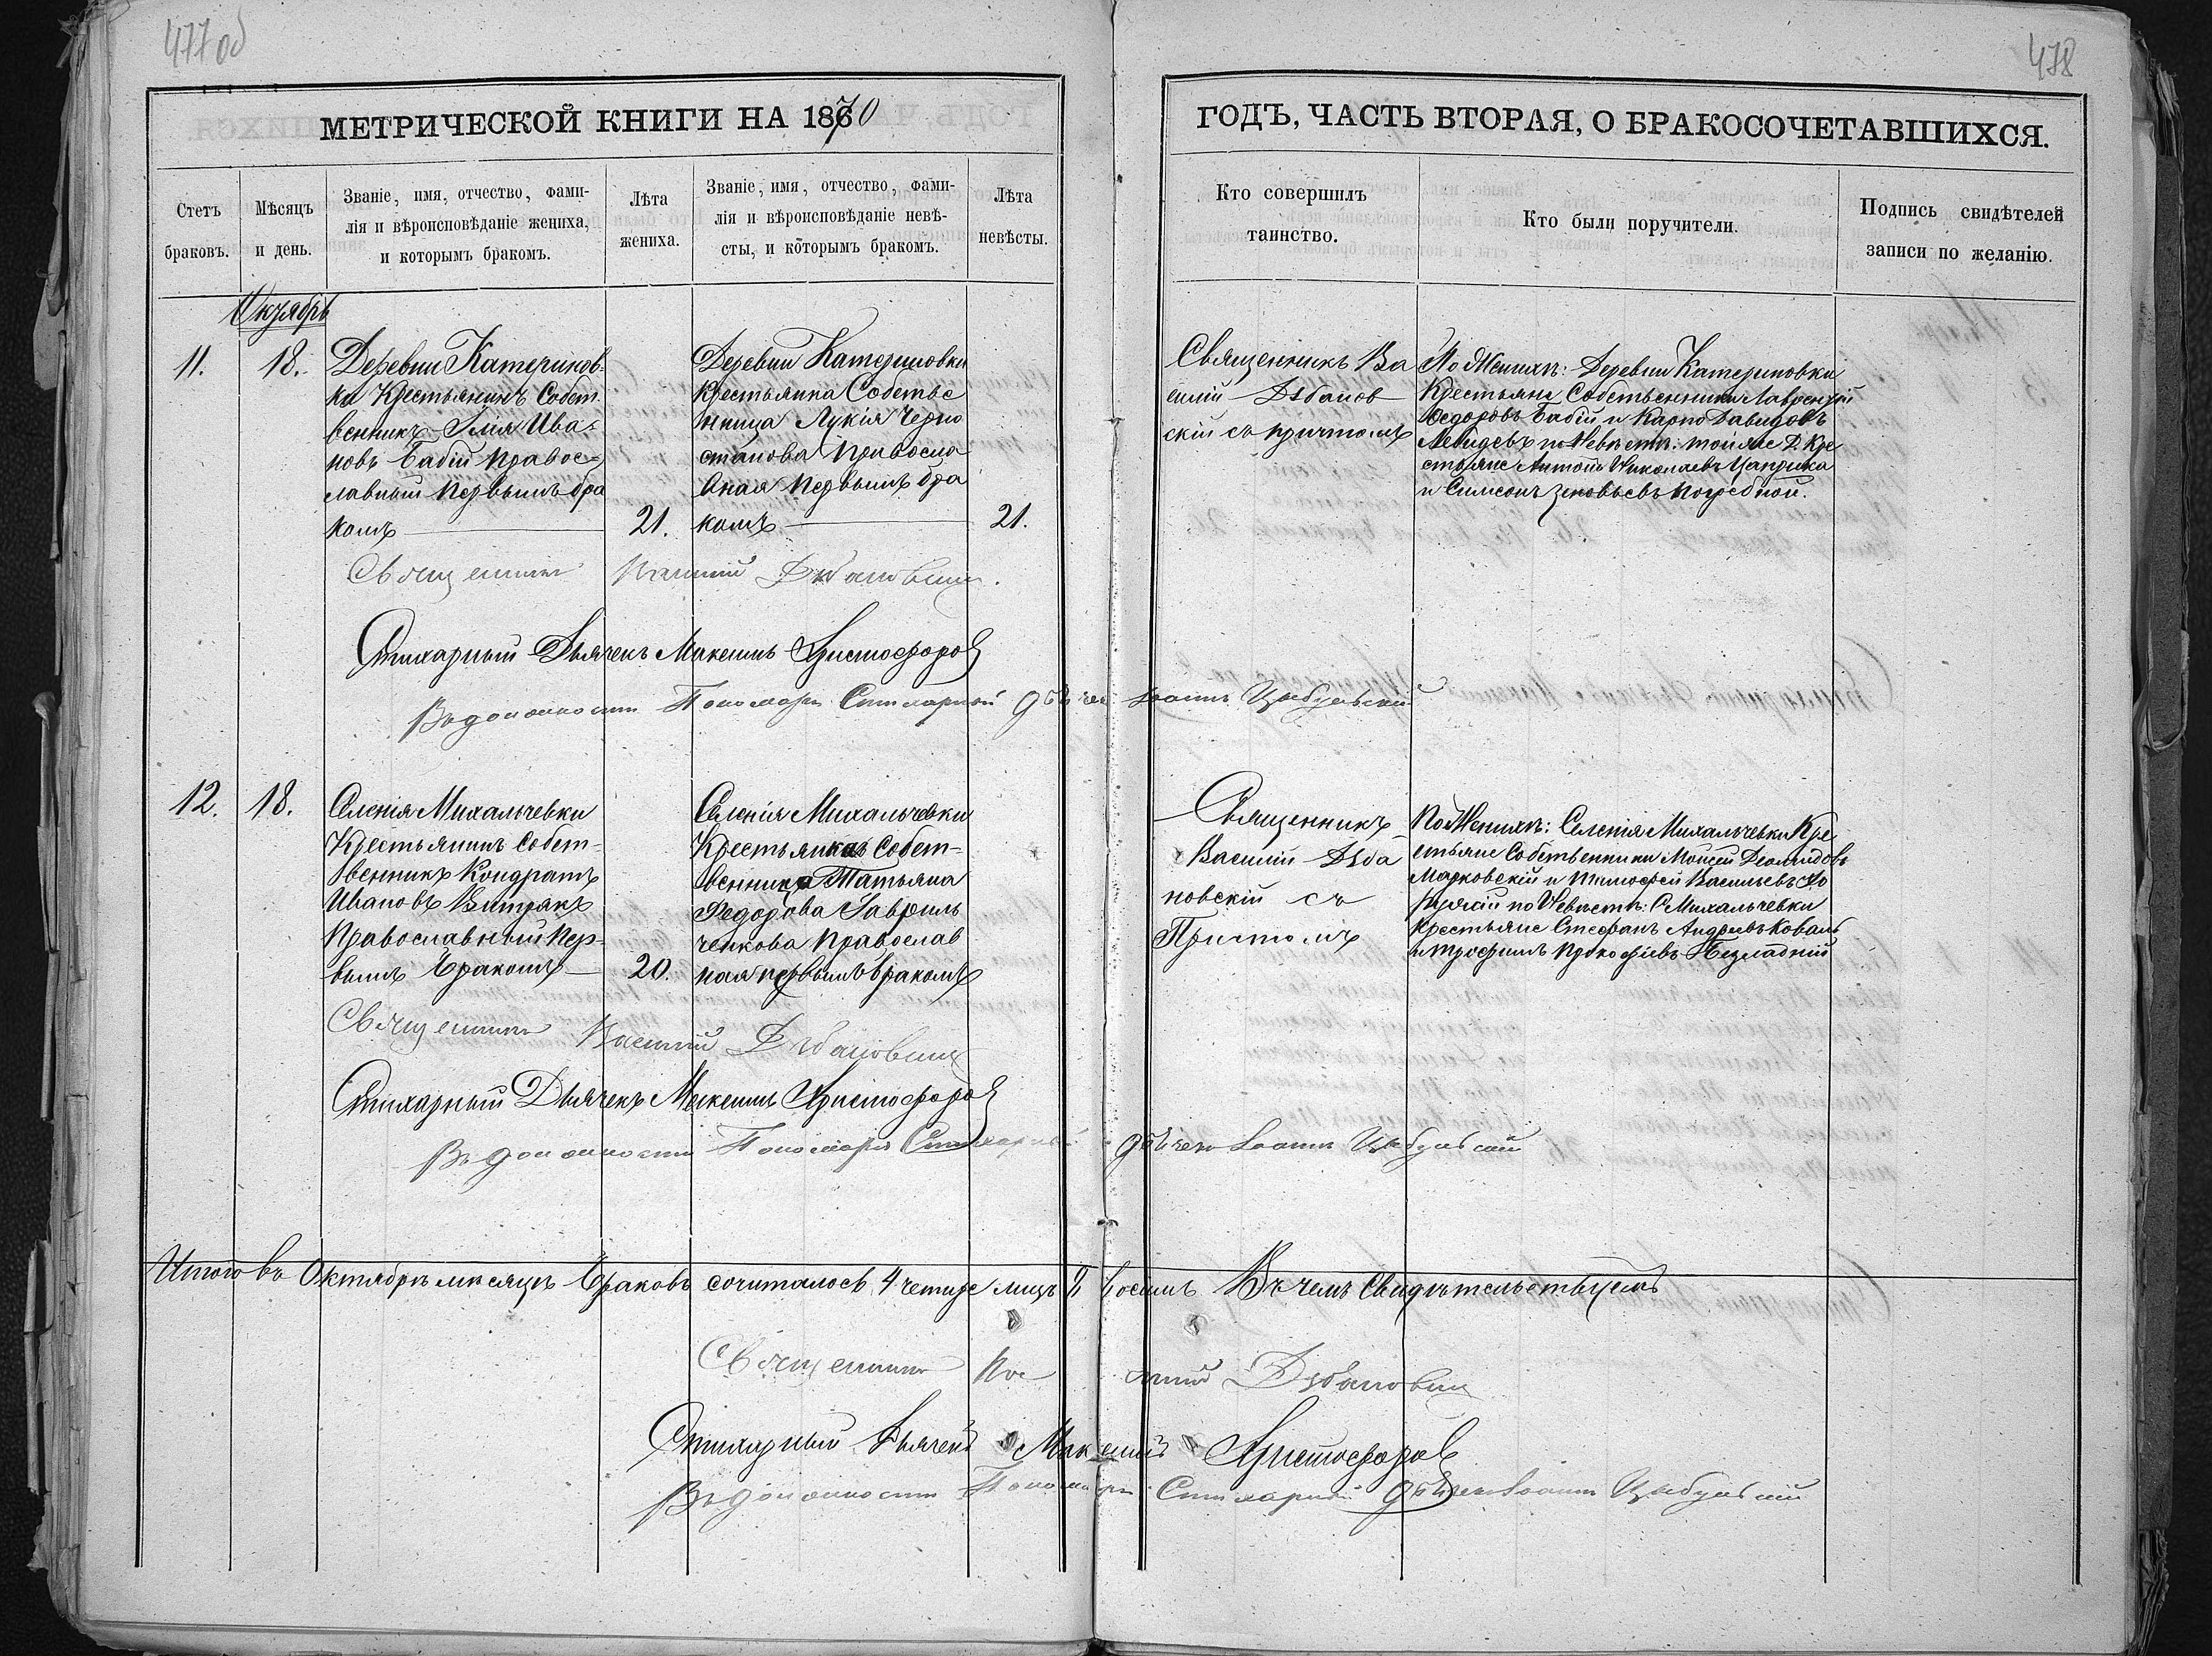 477 об
478
МЕТРИЧЕСКОЙ КНИГИ НА 1870
ГОДЪ, ЧАСТЬ ВТОРАЯ, О БРАКОСОЧЕТАВШИХСЯ.
Счетъ
браковъ.
Мѣсяцъ
и день.
Званіе, имя, отчество, фами-
лія и вѣроисповѣданіе жениха,
и которымъ бракомъ.
Лѣта
жениха.
Званіе, имя, отчество, фами-
лія и вѣроисповѣданіе невѣ-
сты, и которымъ бракомъ.
Лѣта
невѣсты.
Кто совершилъ
таинство.
Кто были поручители.
Подпись свидѣтелей
записи по желанію.
Октябрь
11.
18.
Деревни Катеринов-
ки Крестьянинъ Собст-
венникъ Илія Ива-
новъ Бабій Правос-
лавный первымъ бра
комъ
21.
Деревни Катериновки
Крестьянка Собстве
нница Лукія Черно
стапова Правосла
вная первымъ бра
комъ
21.
Священникъ Ва
силій Дзбанов
скій съ причтомъ
По Женихѣ: Деревни Катериновки
Крестьяне Собственники Лаврентій
Ѳедоровъ Бабій и Карпо Давидовъ
Лебидевъ по Невѣстѣ: той же Д. Кре
стьяне Антонъ Николаевъ Цаприка
и Симеонъ Зеновьевъ Погребной.
Священникъ Василій Дзбановскій.
Стихарный Дьячекъ Максимъ Христофоровъ
Въ должности Пономаря Стихарный дьячекъ Іоаннъ Цыбульскій
12.
18.
Селенія Михальчевки
Крестьянинъ Собст-
венникъ Кондратъ
Ивановъ Витрякъ
Православный Пер-
вымъ бракомъ
20.
Селенія Михальчевки
Крестьянка Собст-
венница Татьяна
Ѳедорова Гавриль
ченкова Православ
ная первымъ бракомъ
Священникъ
Василій Дзба
новскій съ
Причтомъ
По Женихѣ: Селенія Михальчевки Кре
стьяне Собственники Моисей
Марковскій и Тимофей Васильевъ
по Невѣстѣ: С Михальчевки
Крестьяне Стефанъ Андреевъ Коваль
и Трофимъ Прокофіевъ
Священникъ Василій Дзбановскій
Стихарный Дьячекъ Максимъ Христофоровъ
Въ должности Пономаря Стихарный дьячекъ Іоаннъ Цыбульскій
Итого въ Октябрѣ мѣсяцѣ браковъ сочиталось 4 четире лицъ 8 восемъ Въ чемъ Свидѣтельствуемъ
Священникъ Василій Дзбановскій
Стихарный Дьячекъ Максимъ Христофоровъ
Въ должности Пономаря Стихарный дьячекъ Іоаннъ Цыбульскій